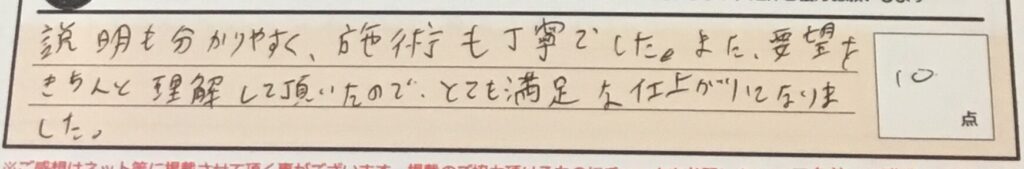 説明も分かりやすく、施術も丁寧でした。また、要望を
きちんと理解して頂いたので、とても満足な仕上がりになりま
した。
10
点
※ご感想はネット等に掲載させて頂く事がございます。